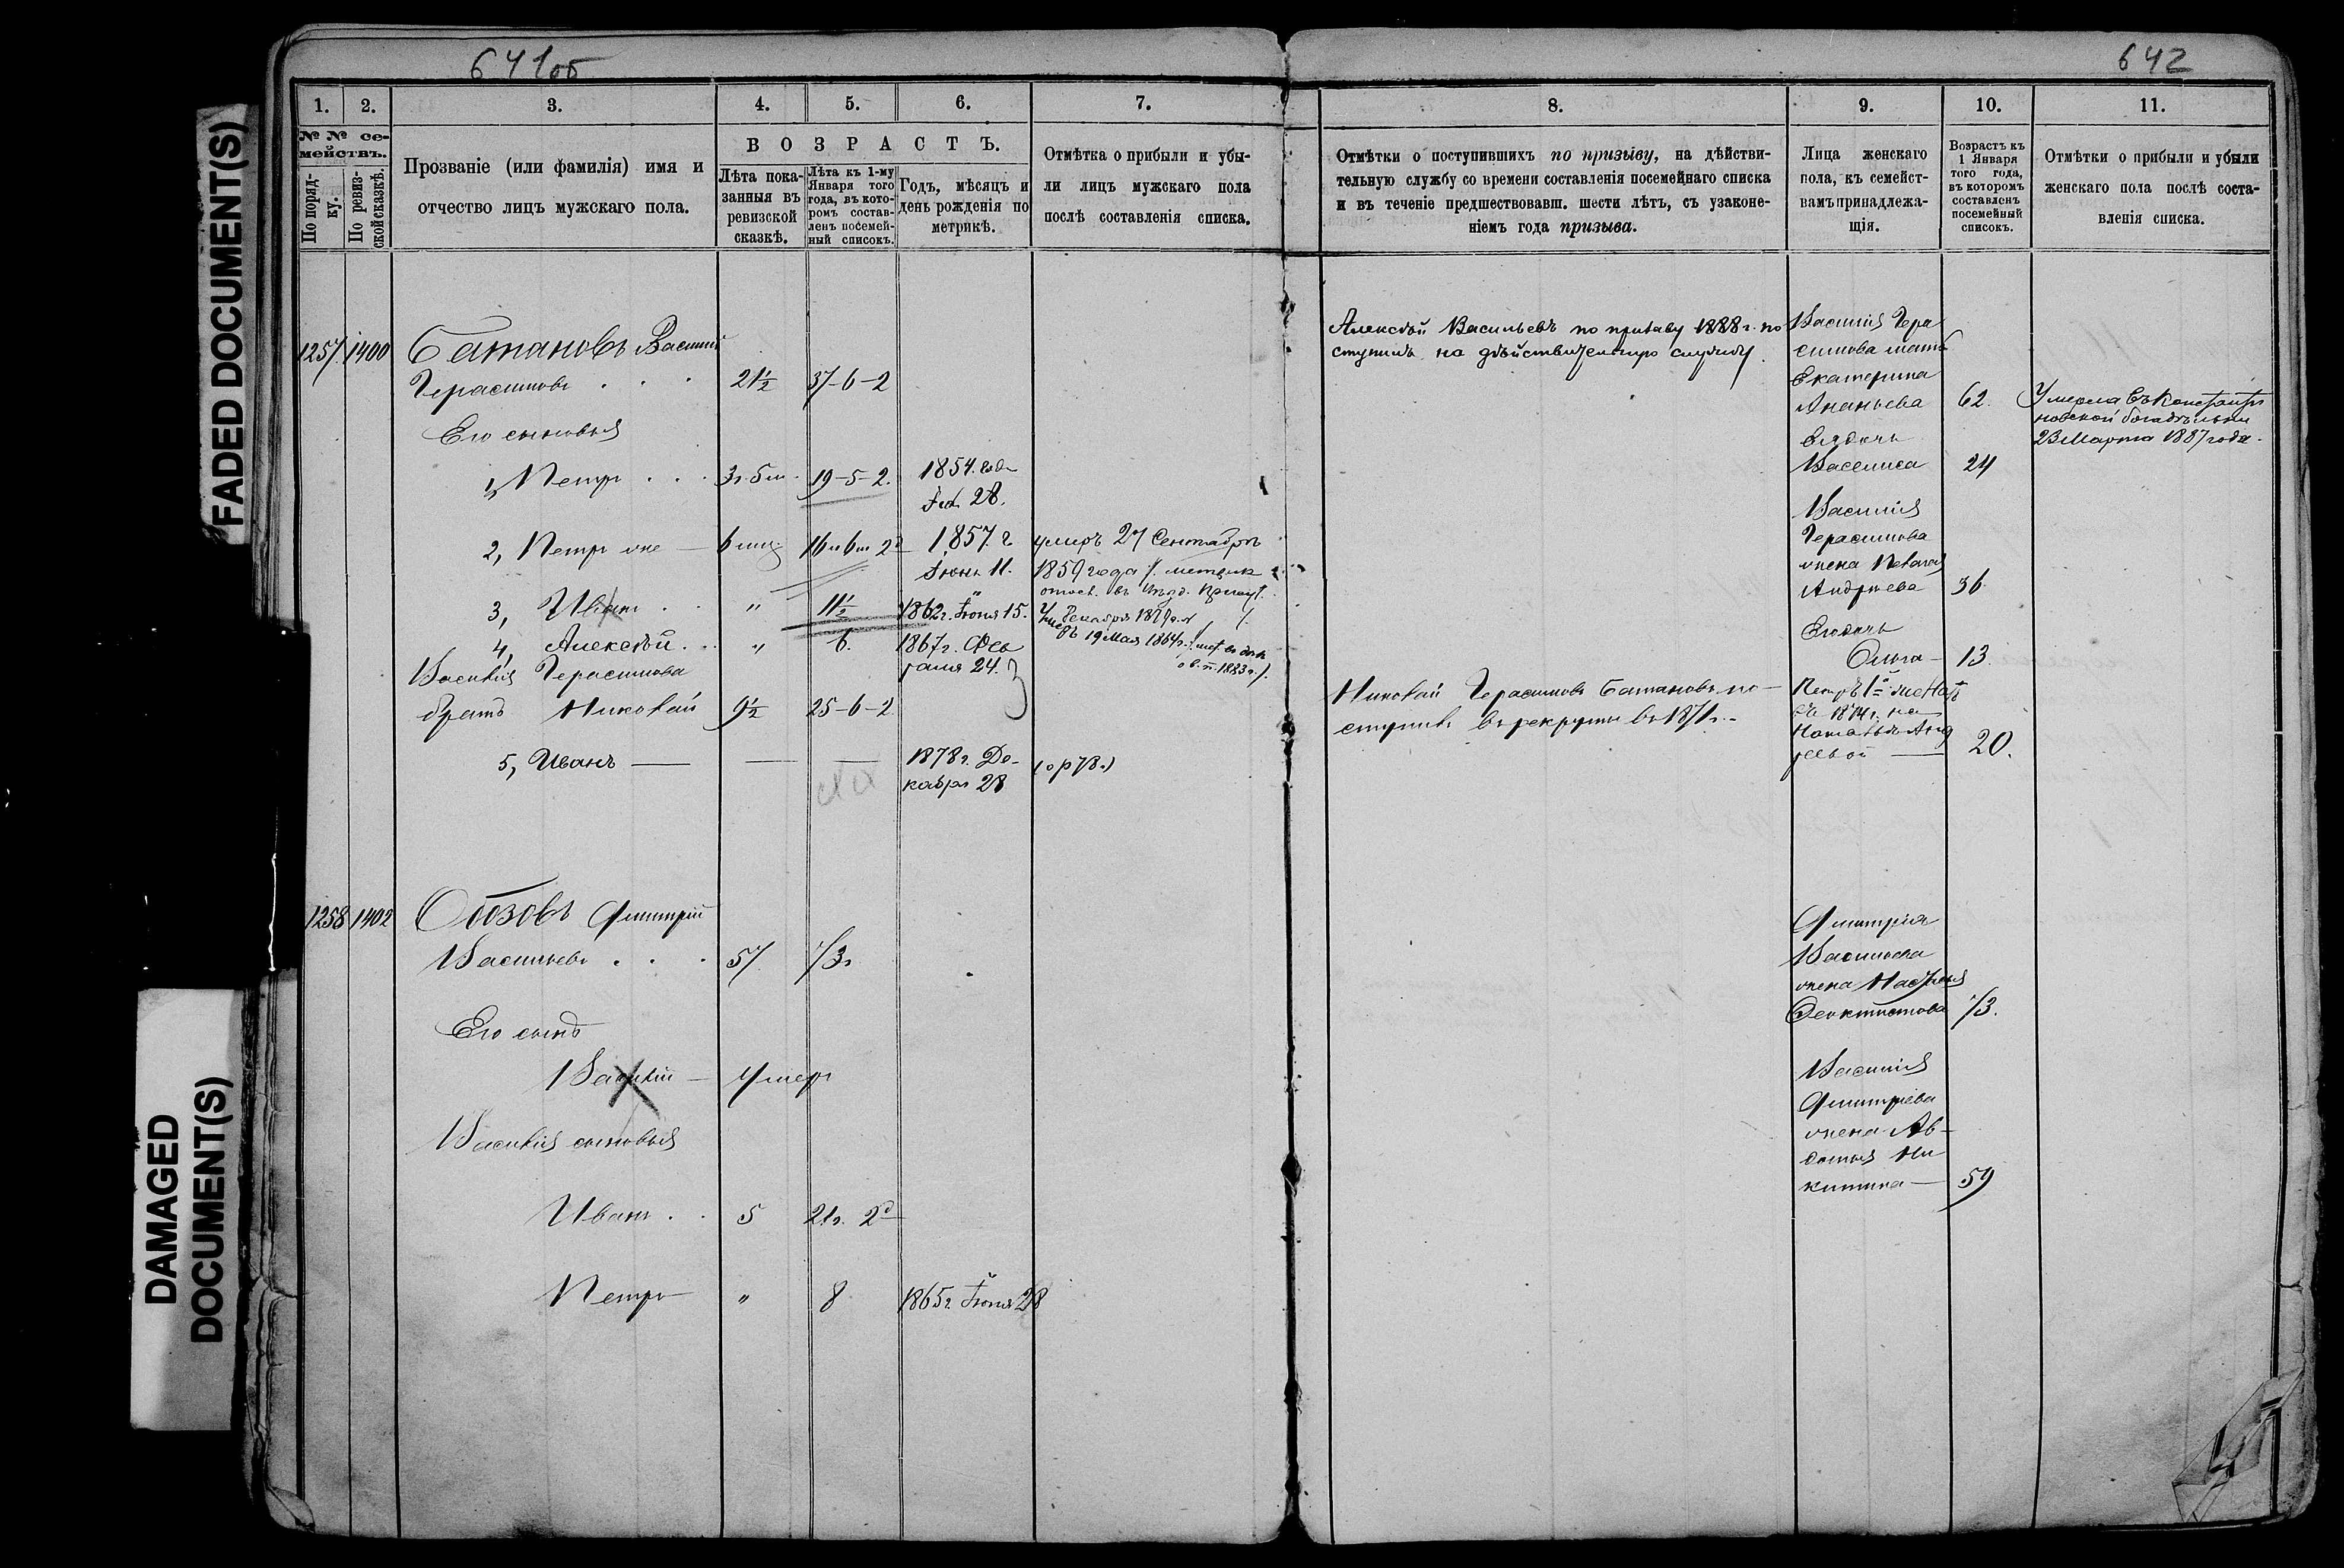 641об
642
FADED DOCUMENT(S)
DAMAGED
DOCUMENT(S)
1. 2. 3. 4. 5. 6. 7.
№ № се-
мействъ.
По поряд-
ку.
По ревиз-
ской сказкѣ.
Прозваніе (или фамилія) имя и
отчество лицъ мужскаго пола.
ВОЗРАСТЪ.
Лѣта пока-
занныя въ
ревизской
сказкѣ.
Лѣта къ 1-му
Января того
года, въ кото-
ромъ состав-
ленъ посемей-
ный списокъ.
Годъ, мѣсяцъ и
день рожденія по
метрикѣ.
Отмѣтка о прибыли и убы-
ли лицъ мужскаго пола
послѣ составленія списка.
1257 1400 Батановъ Василій
Герасимовъ . . . 21½ 37-6-2
Его сыновья
1, Петръ . . . 3г. 5м. 19-5-2. 1854 года
Фев. 28.
2, Петръ же — 6 мц. 16л 6м 2д 1857 г умеръ 27 Сентября
Іюня 11. 1859 года
3, Иванъ . . " 11½ 1862г. Іюня 15.
4, Алексѣй . . " 6. 1867г. Фев
раля 24.
19 Мая 1864г.
1883 г.
Василія Герасимова
братъ Николай 9½ 25-6-2
5, Иванъ — — — 1878г. Де-
кабря 28
1258 1402 Дмитрій
Васильевъ . . . 57 73г
Его сынъ
Василій — Умеръ
Василія сыновья
Иванъ . . 5 21г. 2д
Петръ " 8 1865г. Іюня 28
8. 9. 10. 11.
Отмѣтки о поступившихъ по призыву, на дѣйстви-
тельную службу со времени составленія посемейнаго списка
и въ теченіе предшествовавш. шести лѣтъ, съ узаконе-
ніемъ года призыва.
Лица женскаго
пола, къ семейст-
вамъ принадлежа-
щія.
Возрастъ къ
1 Января
того года,
въ которомъ
составленъ
посемейный
списокъ.
Отмѣтки о прибыли и убыли
женскаго пола послѣ соста-
вленія списка.
Алексѣй Васильевъ по призыву 1888 г. по
ступилъ на дѣйствительную службу.
Василія Гера
симова мать
Екатерина
Ананьева 62.
Умерла въ Константи
новской богадѣльни
23 Марта 1887 года.
Его дочь
Василиса 24
Василія
Герасимова
жена Пелагея
Андреева 36
Его дочь
Ольга — 13.
Николай Герасимовъ Батановъ по-
ступилъ въ рекруты въ 1871г.
Петръ 1й женатъ
въ 1874г. на
Натальѣ Анд
реевой — 20.
Дмитрія
Васильева
жена Настасья
Феоктистова 73.
Василія
Дмитріева
жена Ав-
дотья Ни
китина — 59